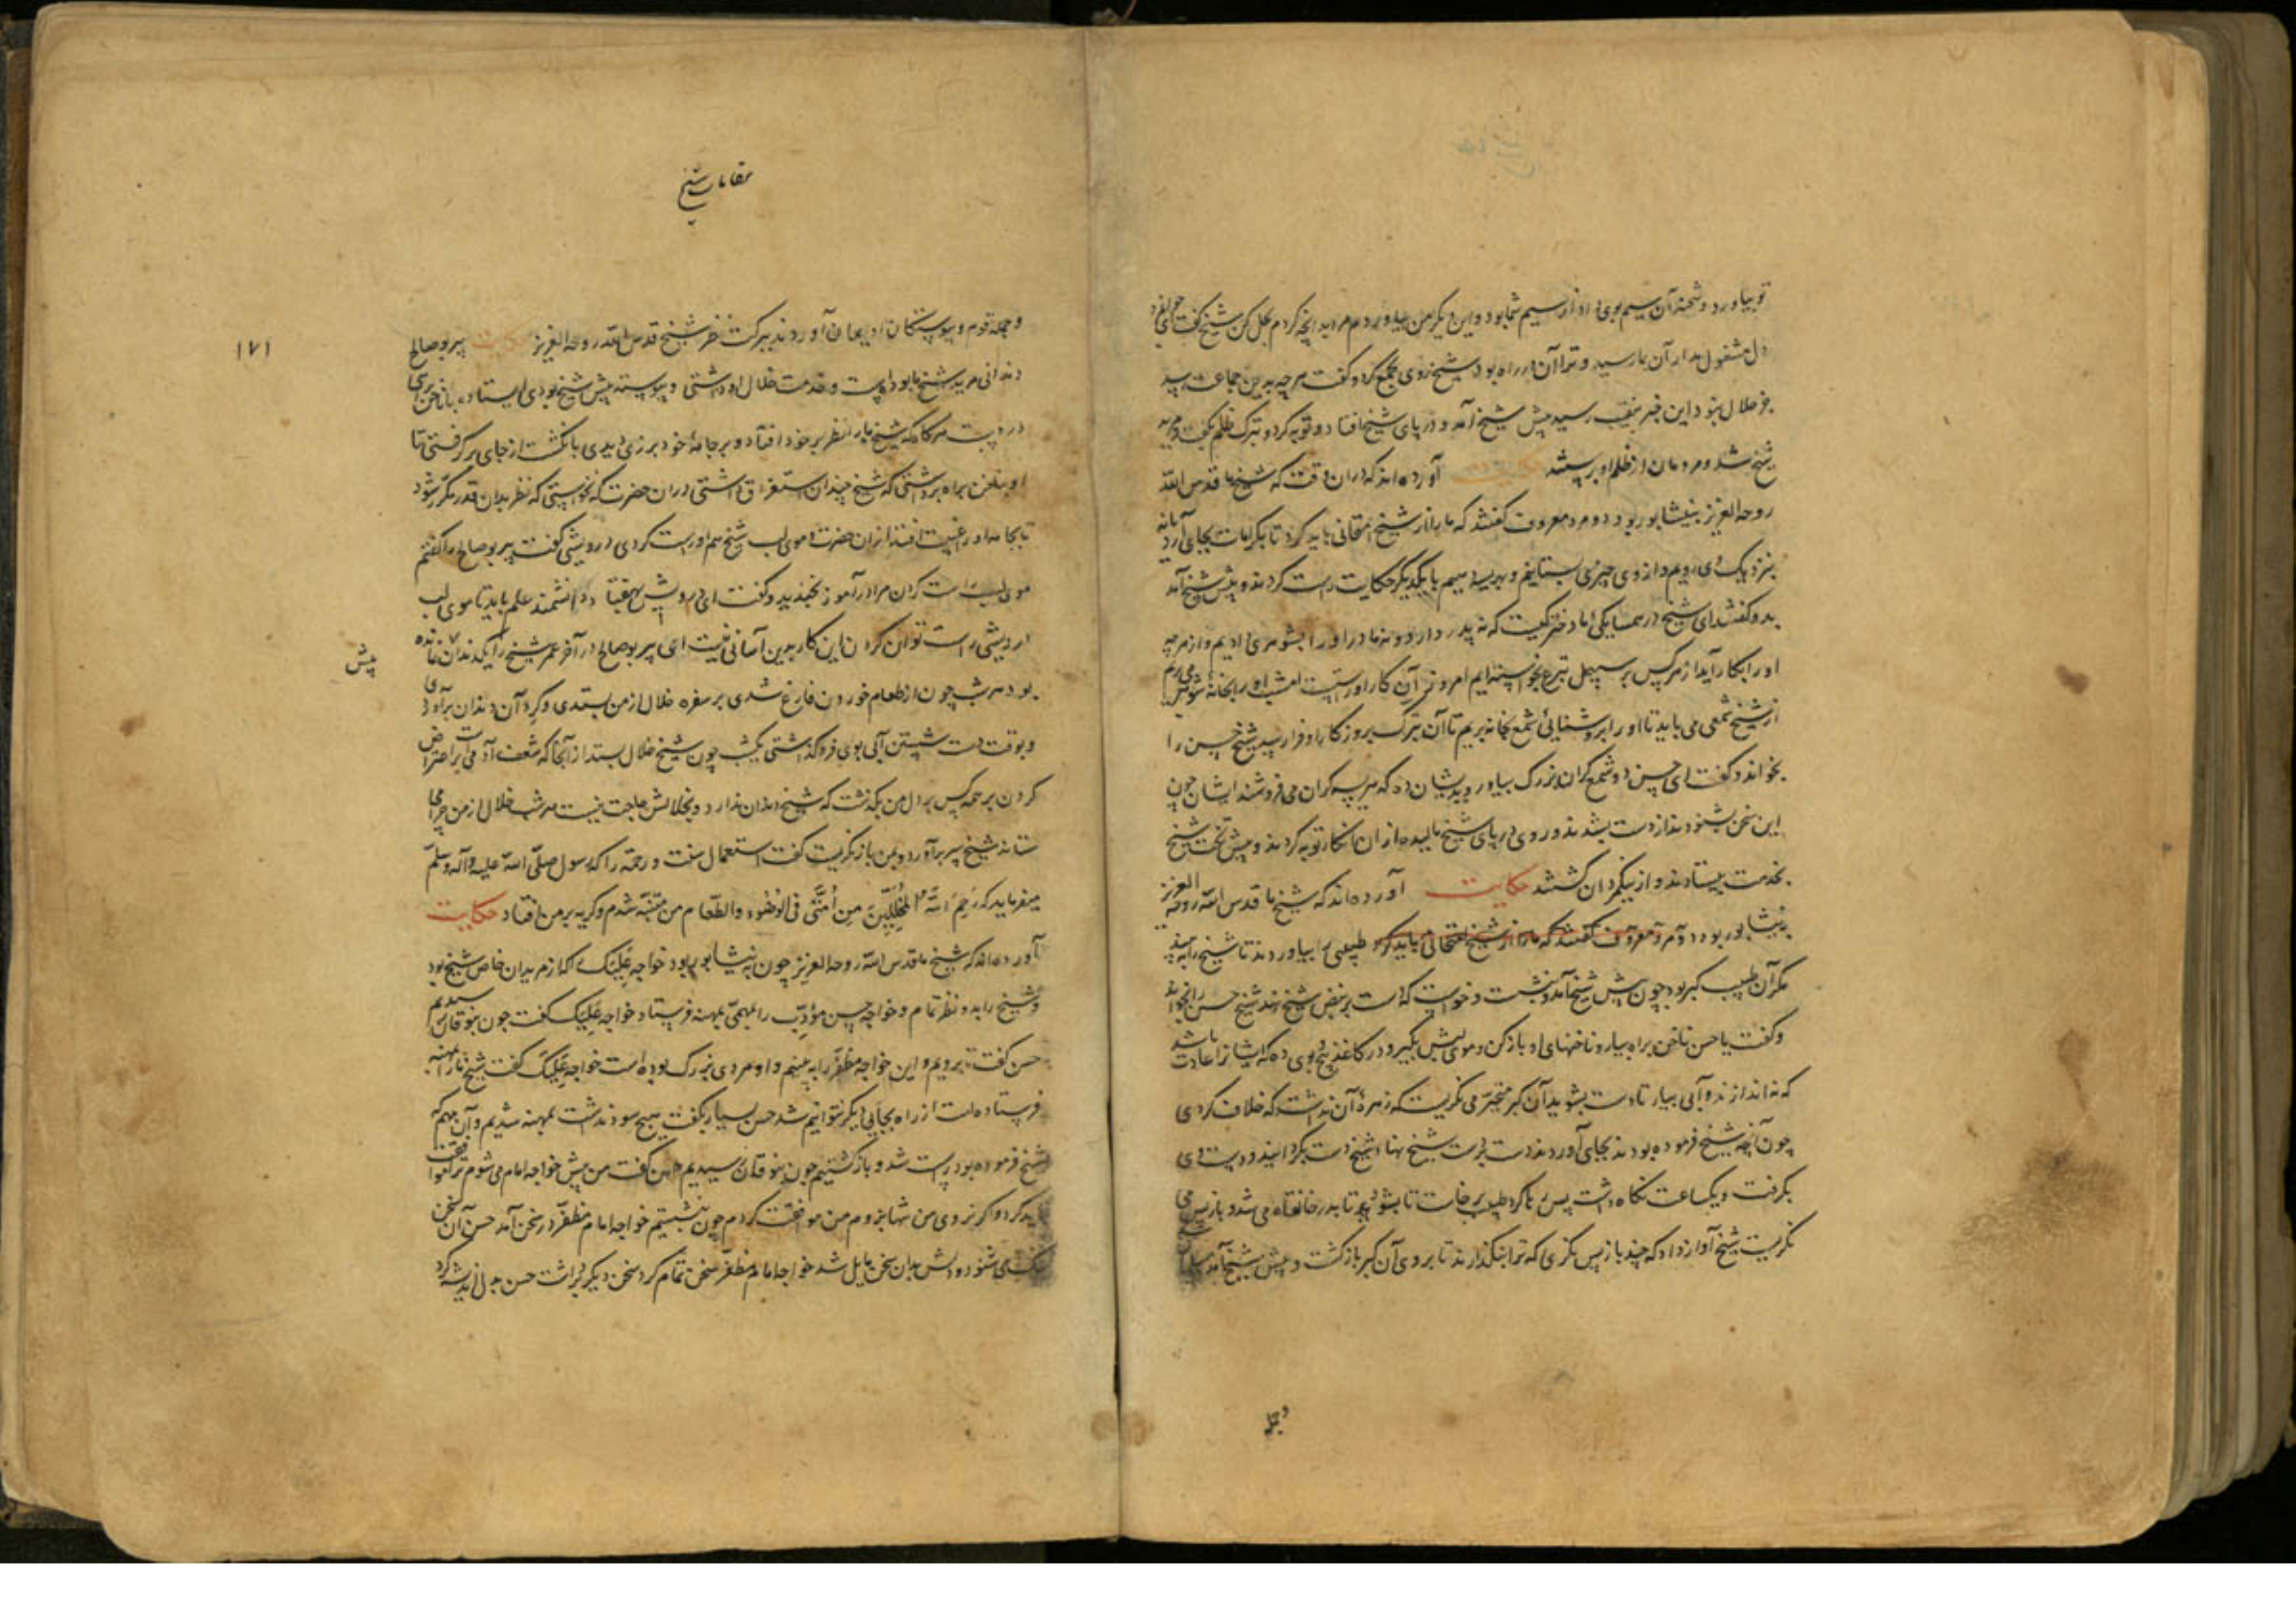 تو بیاورد و شحنه آن سیم بوی داد از سیم شما بود و این دیگر من بیاوردم مرا بدانچه کردم بحل کن شیخ گفت ای جوانمرد
دل مشغول مدار آن بما رسید و ترا آن در راه بود شیخ روی بجمع کرد و گفت هرچه بدین جماعت رسد
جز حلال نبود این خبر بنقیب رسید پیش شیخ آمد و در پای شیخ افتاد و توبه کرد و ترک ظلم بگفت و مرید
شیخ شد و مردمان از ظلم او برستند حکایت آورده‌اند که در آن وقت که شیخ ما قدس الله
روحه العزیز بنیشابور بود دو مرد معروف گفتند که ما را از شیخ امتحانی باید کرد تا بکرامات بجای آرد یا نه
بنزدیک وی رویم و از وی چیزی بستانیم و بهریسه دهیم با یکدیگر حکایت راست کردند و پیش شیخ آمدند
بدو گفتند ای شیخ در همسایگی ما دخترکیست که نه پدر دارد و نه مادر او را بشوهری دادیم و از هرچه
او را بکار آید از هر کس بر سبیل تبرع بخواسته‌ایم امروز آن کار او راست امشب او را بخانه شوهر می‌بریم
از شیخ شمعی می باید تا او را بروشنائی شمع بخانه بریم تا آن تبرک بروزگار او فرا رسد شیخ حسن را
بخواند و گفت ای حسن دو شمع گران بزرگ بیاور و بدیشان ده که هریسه‌گران می‌فروشند ایشان چون
این سخن بشنودند از دست بشدند و روی در پای شیخ مالیدند از آن انکار توبه کردند و پیش تخت شیخ
بخدمت بیستادند و از نیکمردان گشتند حکایت آورده‌اند که شیخ ما قدس الله روحه العزیز
بنیشابور بود دو مرد معروف گفتند که ما را از شیخ امتحانی باید کرد طبیبی را بیاوردند تا شیخ را به بیند
مگر آن طبیب گبر بود چون پیش شیخ آمد و بنشست و خواست که دست بر نبض شیخ نهد شیخ حسن را بخواند
و گفت یا حسن ناخن براه بیار و ناخنهای او باز کن و موی لبش بگیر و در کاغذ پیچ و بوی ده که ایشان را عادت باشد
که نه اندازند و آبی بیار تا دست بشوید آن گبر متحیر می نگریست که زهره آن نداشت که خلاف کردی
چون آنچه شیخ فرموده بودند بجای آوردند دست بر دست شیخ نهاد شیخ دست بگردانید و دست وی
بگرفت و یکساعت نگاه داشت پس رها کرد طبیب برخاست تا بشود تا بدر خانقاه می شد و باز پس می
نگریست شیخ آواز داد که چند باز پس نگری که ترا بنگذارند تا بروی آن گبر بازگشت و پیش شیخ آمد مسلمان شد
و جمله
مقامات شیخ
۱۷۱
و جمله قوم و پیوستگان او ایمان آوردند ببرکت نظر شیخ قدس الله روحه العزیز حکایت پیر بو صالح
دندانی مرید شیخ ما بوده است و خدمت خلال او داشتی و پیوسته پیش شیخ بودی ایستاده با ناخن برای
در دست هرگاه که شیخ ما را نظر بر خود افتاد و بر جامه خود برزی دیدی بانگشت از جای برگرفتی تا
او بناخن براه برداشتی که شیخ چندان استغراق داشتی در آن حضرت که نخواستی که نظر بدان قدر مکرر شود
تا بجامه او را غیبت افتد از آن حضرت و موی لب شیخ هم او راست کردی درویشی گفت پیر بو صالح را گفتم
موی لب راست کردن مرا درآموز بخندید و گفت ای درویش بهفتاد دانشمند علم باید تا موی لب
درویشی راست توان کردن این کار بدین آسانی نیست ای پیر بو صالح در آخر عمر شیخ را یک دندان مانده
بود هر شب چون از طعام خوردن فارغ شدی بر سفره خلال از من بستدی و گرد آن دندان برآوردی
و بوقت دست شستن آبی بوی فروگذاشتی یکشب چون شیخ خلال بستد از آنجا که شعف آدمی است بر اعتراض
کردن بر همه کس بر دل من بگذشت که شیخ دندان ندارد و بخلالش حاجت نیست هر شب خلال از من چرا می
ستاند شیخ سر برآورد و بمن باز نگریست گفت استعمال سنت و رحمة را که رسول صلّی الله علیه و آله و سلّم
میفرماید که رَحِمَ اللّهُ المُخَلِّلینَ مِن اُمَّتی فی الوضوء والطّعام من متنبّه شدم و گریه بر من افتاد حکایت
آورده‌اند که شیخ ما قدس الله روحه العزیز چون بنیشابور بود خواجه علیک که از مریدان خاص شیخ بود
و شیخ را بدو نظر تمام و خواجه حسن مؤدّب را بمهمّی بمهنه فرستاد خواجه علیک گفت چون بنوقان رسیدیم
حسن گفت تا برویم و این خواجه مظفّر را ببینیم و او مردی بزرگ بوده است خواجه علیک گفت شیخ ما را بمهنه
فرستاده است از راه بجایی دیگر نتوانیم شد حسن بسیار بگفت هیچ سود نداشت بمهنه شدیم و آن مهم که
شیخ فرموده بود راست شد و بازگشتیم چون بنوقان رسیدیم حسن گفت من پیش خواجه امام می شوم ترا موافقت
باید کرد و اگر نروی من تنها بروم من موافقت کردم چون بنشستیم خواجه امام مظفّر در سخن آمد حسن آن سخن
می شنود و دلش بدان سخن مایل شد خواجه امام مظفّر سخن تمام کرد سخن دیگر برداشت حسن بدل اندیشه کرد
پیش